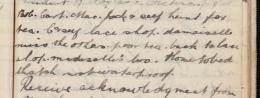 Bob. Capt. Mac. Jock & self hunt for
tea. Crazy lace shop. damoiselle
miss the other. poor tea. back to lace
shop. medaselle's two. Home to bed
thatch not waterproof.
Receive acknowledgment from